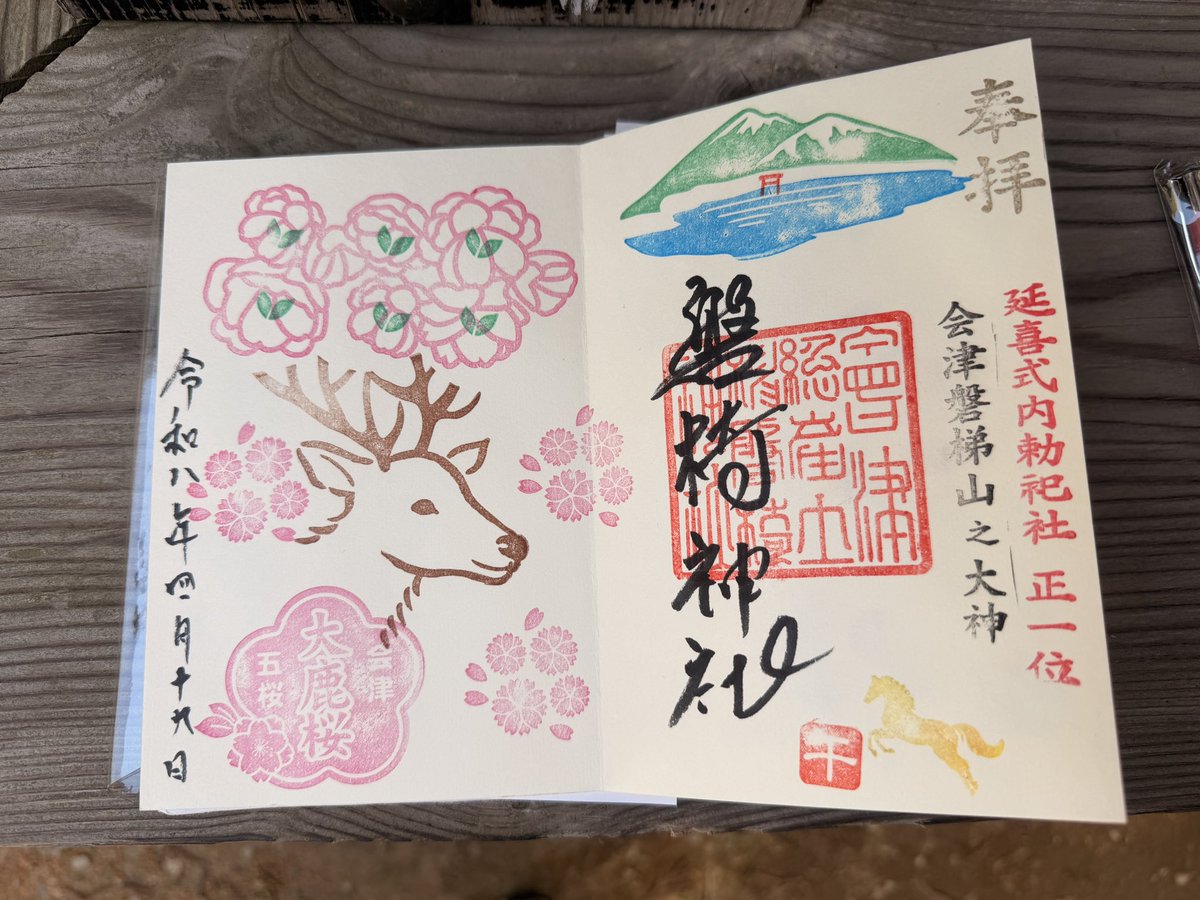 奉拝
延喜式内勅祀社 正一位
会津磐梯山之大神
會津
総産土
磐椅神社
午
会津
大鹿桜
五桜
令和八年四月十九日